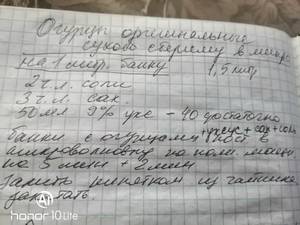 Огурцы оригинальные
сухого стерилиз в микро
на 1 литр. банку 1,5 литр
2 ч. л. соли
3 ч. л. сах
50 мл 9% укс - 40 достаточно
+ уксус + сах + соль
банки с огурцами пост в
микроволновку на полн мощн
на 5 мин + 2 мин
Залить кипятком из чайника
закатать.
honor 10 Lite